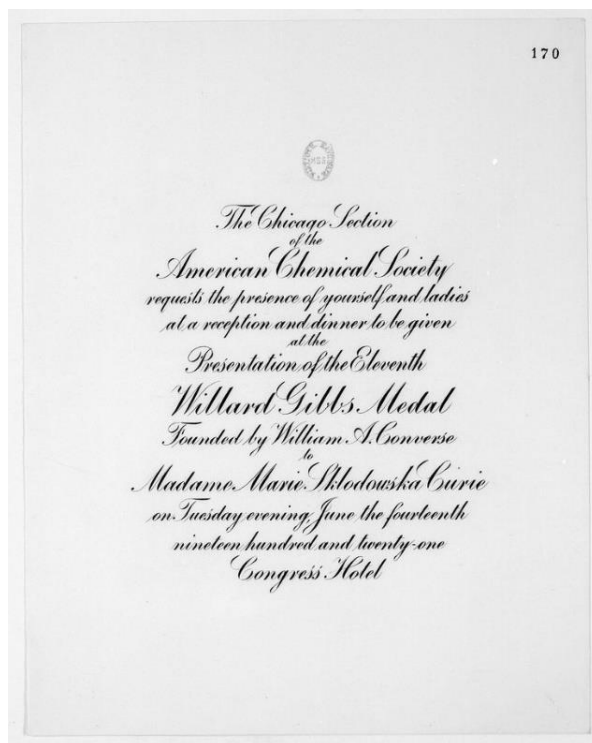 170
The Chicago Section
of the
American Chemical Society
requests the presence of yourself and ladies
at a reception and dinner to be given
at the
Presentation of the Eleventh
Willard Gibbs Medal
Founded by William A. Converse
to
Madame Marie Sklodowska Curie
on Tuesday evening, June the fourteenth
nineteen hundred and twenty-one
Congress Hotel